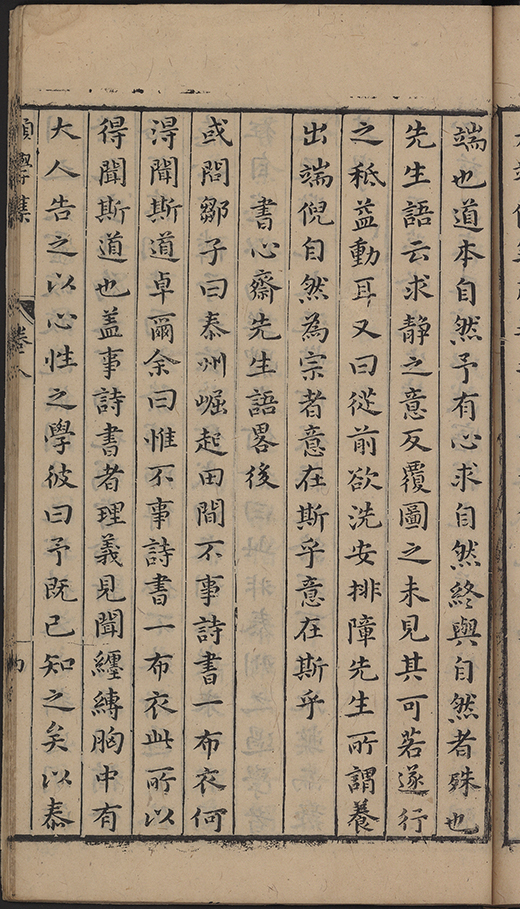 端也道本自然予有心求自然終與自然者殊也
先生語云求静之意反覆圖之未見其可若遂行
之秪益動耳又曰從前欲洗安排障先生所謂養
出端倪自然為宗者意在斯乎意在斯乎
書心齋先生語畧後
或問鄒子曰泰州崛起田間不事詩書一布衣何
得聞斯道卓爾余曰惟不事詩書一布衣此所以
得聞斯道也盖事詩書者理義見聞纒縛胸中有
大人告之以心性之學彼曰予既已知之矣以泰
願學集
卷八